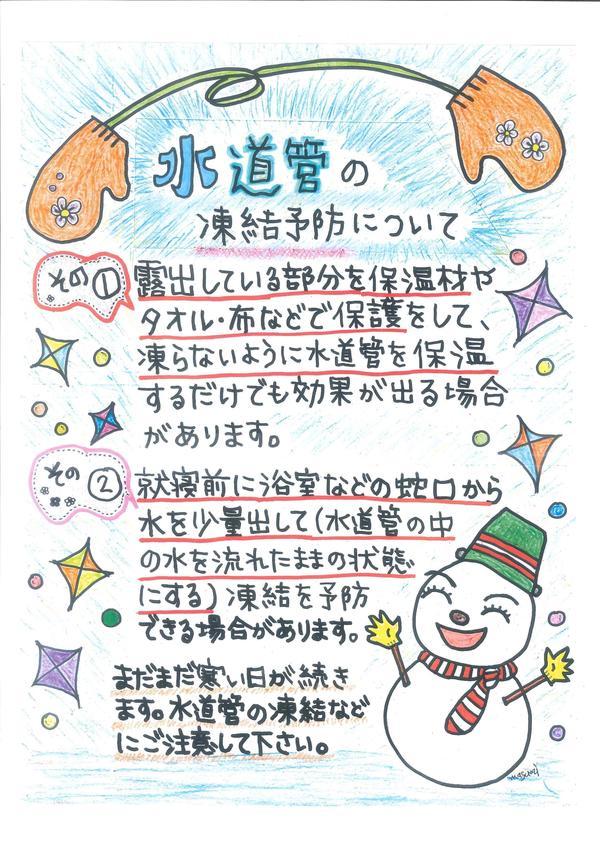 水道管の
凍結予防について
その①
露出している部分を保温材や
タオル・布などで保護をして、
凍らないように水道管を保温
するだけでも効果が出る場合
があります。
その②
就寝前に浴室などの蛇口から
水を少量出して(水道管の中
の水を流れたままの状態
にする)凍結を予防
できる場合があります。
まだまだ寒い日が続き
ます。水道管の凍結など
にご注意して下さい。